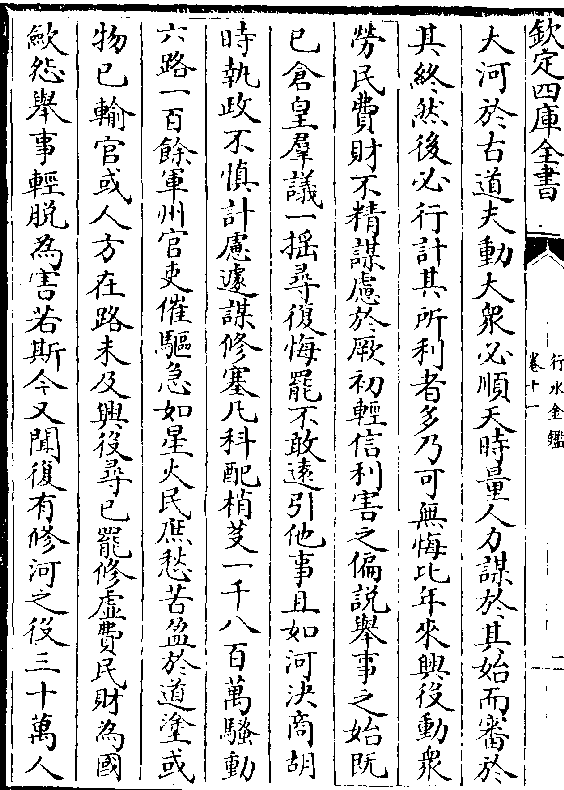 欽定四庫全書
行水金鑑
卷十一
二
大河於古道夫動大衆必順天時量人力謀於其始而審於
其終然後必行計其所利者多乃可無悔比年來興役動衆
勞民費財不精謀慮於厥初輕信利害之偏説舉事之始既
已倉皇羣議一揺尋復悔罷不敢逺引他事且如河決商胡
時執政不慎計慮遽謀修塞凡科配梢芟一千八百萬騷動
六路一百餘軍州官吏催驅急如星火民庶愁苦盈於道塗或
物已輸官或人方在路未及興役尋已罷修虚費民財為國
歛怨舉事輕脱為害若斯今又聞復有修河之役三十萬人